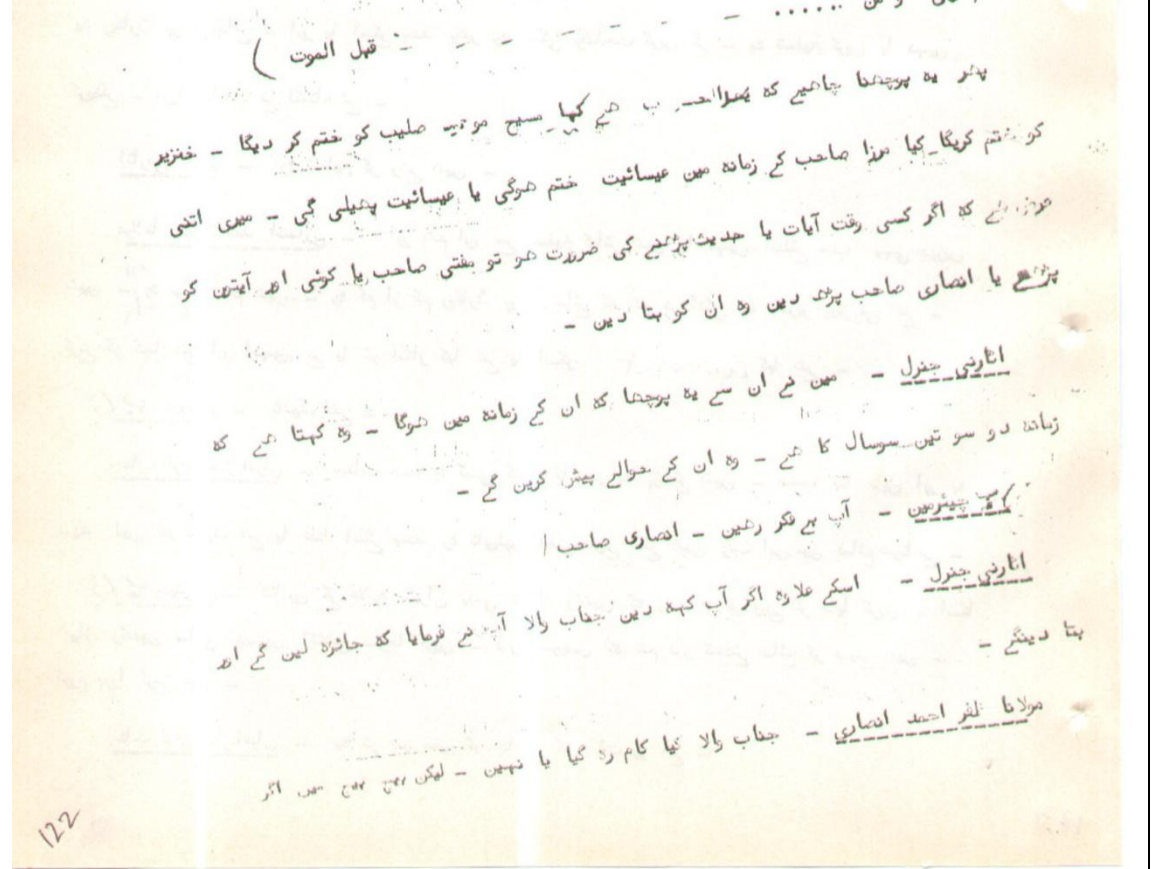 قبل الموت )
پھر یہ پوچھنا چاہیے کہ ھے کیا مسیح صلیب کو ختم کر دیگا ـ خنزیر
کو ختم کریگا ـ کیا مرزا صاحب کے زمانہ مین عیسائیت ختم ھوگی یا عیسائیت پھیلی گی ـ میری اتنی
کہ اگر کسی وقت آیات یا حدیث پڑھنے کی ضرورت ھو تو مفتی صاحب یا کوئی اور آیتون کو
پڑھے یا انصاری صاحب پڑھ دین وہ ان کو بتا دین ـ
اٹارنی جنرل ـ مین نے ان سے یہ پوچھا کہ ان کے زمانہ مین ھوگا ـ وہ کہتا ھے کہ
زمانہ دو سو تین سوسال کا ھے ـ وہ ان کے حوالے پیش کرین گے ـ
چیئرمین ـ آپ بے فکر رھین ـ انصاری صاحب /
اٹارنی جنرل ـ اسکے علاوہ اگر آپ کہہ دین جناب والا آپ نے فرمایا کہ جائزہ لین گے اور
بتا دینگے ـ
مولانا ظفر احمد انصاری ـ جناب والا کیا کام رہ گیا یا نہین ـ لیکن بیچ بیچ میں اگر
122